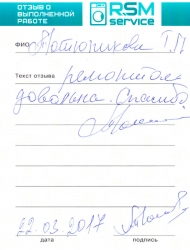 ОТЗЫВ О
ВЫПОЛНЕННОЙ
РАБОТЕ
RSM
service
ФИО
Текст отзыва
ремонтом
довольна. Спасибо
22.03.2017
дата
подпись